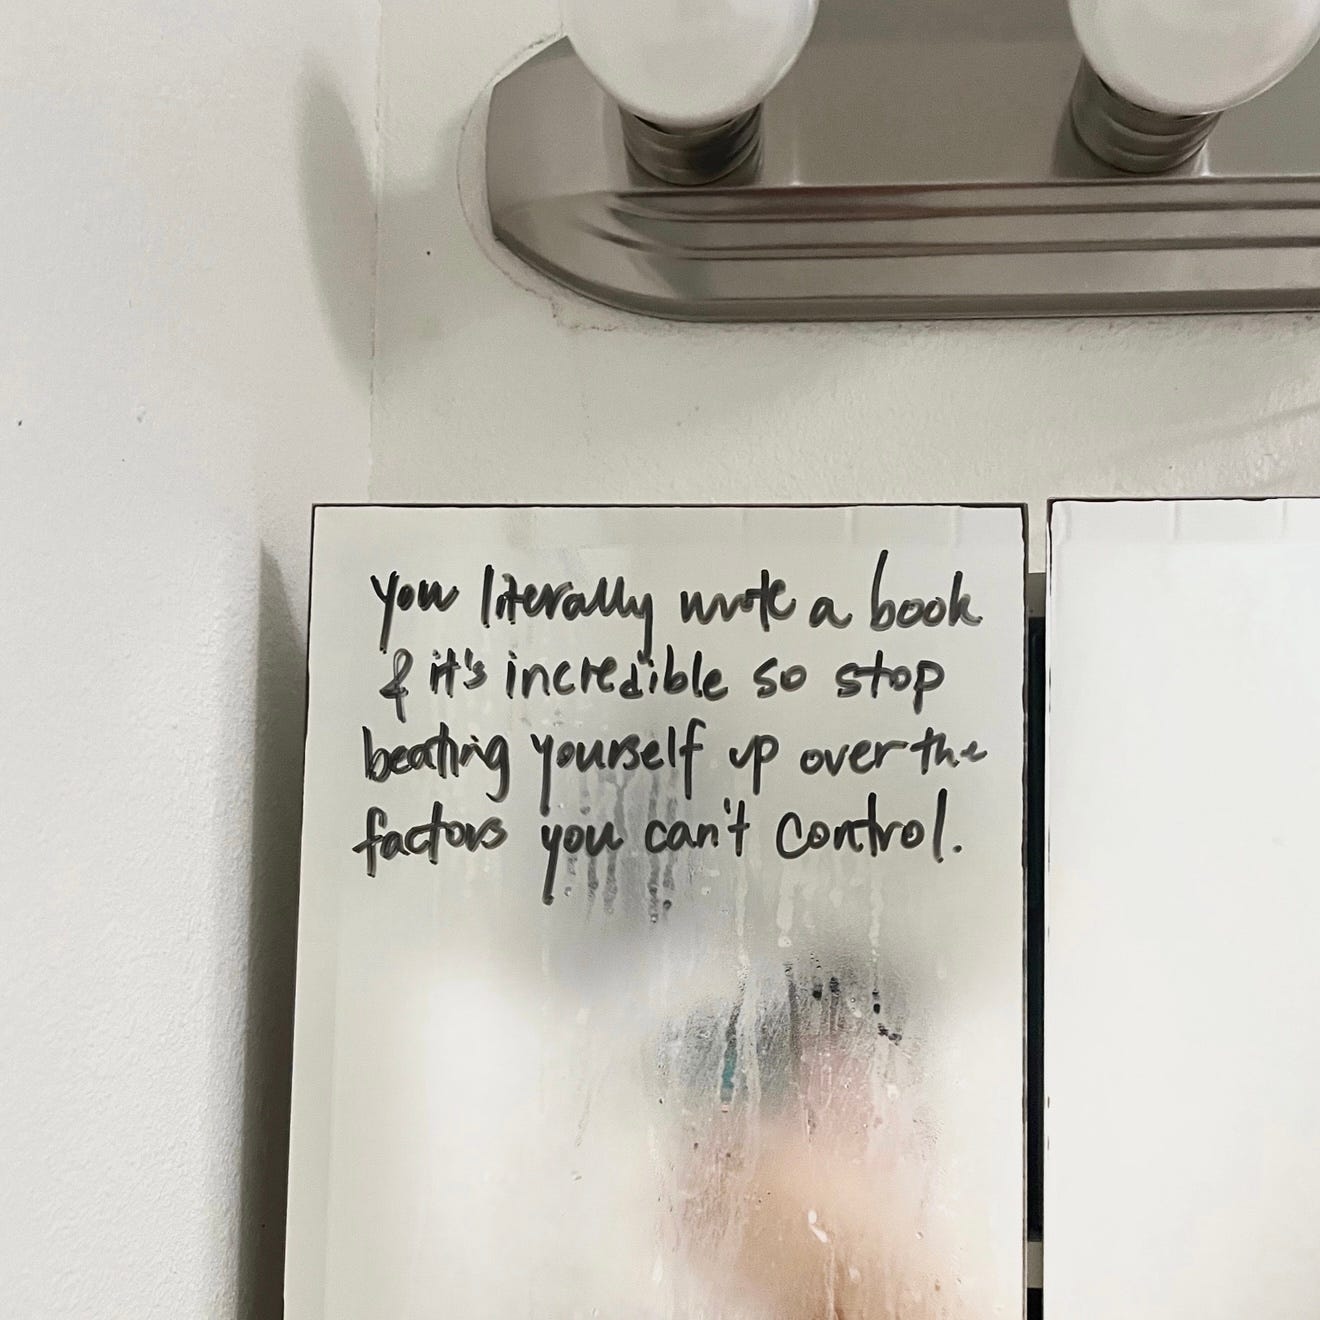 you literally wrote a book
& it's incredible so stop
beating yourself up over the
factors you can't control.